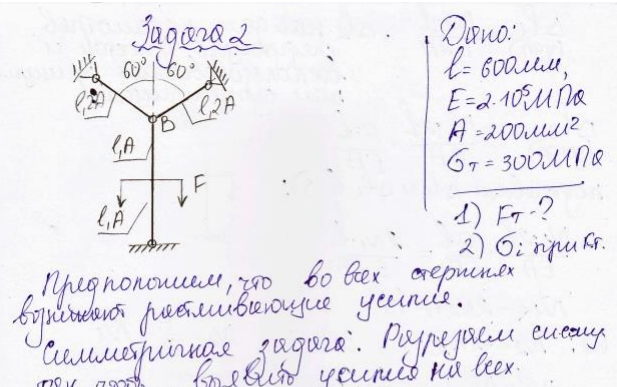 Задача 2
60° 60°
l,2A l,2A
B
l,A
F
l,A
Дано:
l = 600мм,
E = 2·10⁵МПа
A = 200мм²
σт = 300МПа
1) Fт - ?
2) σi при Fт.
Предположим, что во всех стержнях
возникают растягивающие усилия.
Симметричная задача. Разрезаем систему
выявить усилия на всех